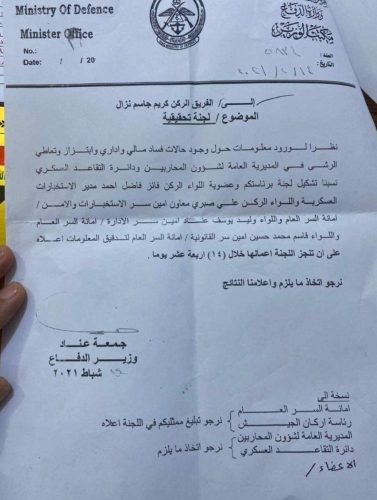 Ministry Of Defence
Minister Office
No.:
Date: / / 20
وزارة الدفاع
العدد:
التاريخ:
إلى / الفريق الركن كريم جاسم نزال
الموضوع / لجنة تحقيقية
نظرا لورود معلومات حول وجود حالات فساد مالي واداري وابتزاز وتعاطي
الرشى في المديرية العامة لشؤون المحاربين ودائرة التقاعد العسكري
نسبنا تشكيل لجنة برئاستكم وعضوية اللواء الركن فائز فاضل احمد مدير الاستخبارات
العسكرية واللواء الركن علي صبري معاون امين سر الاستخبارات والامن /
امانة السر العام واللواء وليد يوسف عناد امين سر الادارة / امانة السر العام
واللواء قاسم محمد حسين امين سر القانونية / امانة السر العام لتدقيق المعلومات اعلاه
على ان تنجز اللجنة اعمالها خلال (١٤) اربعة عشر يوما .
نرجو اتخاذ ما يلزم واعلامنا النتائج
جمعة عناد
وزير الدفاع
شباط ٢٠٢١
نسخة الى
امانة السر العام
رئاسة اركان الجيش
نرجو تبليغ ممثليكم في اللجنة اعلاه
المديرية العامة لشؤون المحاربين
دائرة التقاعد العسكري
نرجو اتخاذ ما يلزم
الاعضاء /